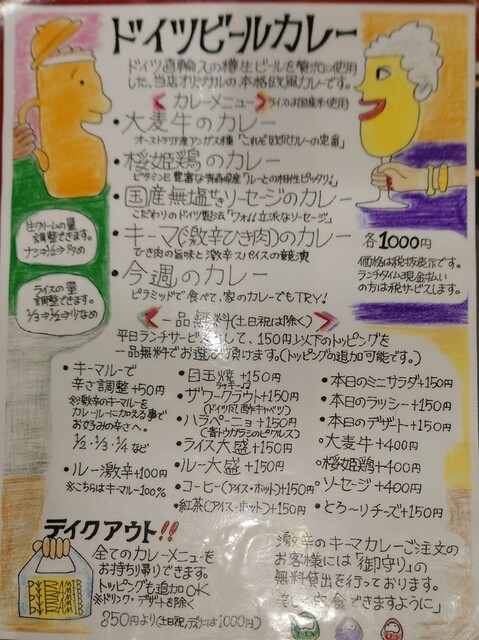 ドイツビールカレー
ドイツ直輸入の樽生ビールを贅沢に使用
した、当店オリジナルの本格欧風カレーです。
カレーメニュー ライスは国産米使用
・大麦牛のカレー
オーストラリア産アンガス種「これぞ欧風カレーの定番」
・桜姫鶏のカレー
ビタミンE豊富な青森県産「ルーとの相性ピッタリ。」
・国産無塩せきソーセージのカレー
こだわりのドイツ製法「フォ!!立派なソーセージ」
・キーマ(激辛ひき肉)のカレー
ひき肉の旨味と激辛スパイスの競演
・今週のカレー
ピラミッドで食べて、家のカレーでもTRY!
生クリームの量
調整できます。
ナシ⇔1/2⇔多め
ライスの量
調整できます。
1/3⇔1/2⇔少なめ
各1000円
価格は税抜表示です。
ランチタイム現金払い
の方は税サービスします。
一品無料(土日祝は除く)
平日ランチサービスとして、150円以下のトッピングを
一品無料でお選び頂けます。(トッピングの追加可能です。)
・キーマルーで
辛さ調整+50円
※激辛のキーマルーを
カレールーに加える事で
お好みの辛さへ。
1/2・1/3・1/4など
・ルー激辛+100円
※こちらはキーマルー100%
・目玉焼+150円
・ザワークラウト+150円
(ドイツ風酢キャベツ)
・ハラペーニョ+150円
(青トウガラシのピクルス)
・ライス大盛+150円
・ルー大盛+150円
・コーヒー(アイス・ホット)+150円
・紅茶(アイス・ホット)+150円
・本日のミニサラダ+150円
・本日のラッシー+150円
・本日のデザート+150円
・大麦牛+400円
・桜姫鶏+400円
・ソーセージ+400円
・とろーりチーズ+150円
テイクアウト!!
全てのカレーメニューを
お持ち帰りできます。
トッピングも追加OK
※ドリンク・デザートを除く
850円より(土日祝、ディナーは1000円)
激辛のキーマカレーご注文の
お客様には「御守り」の
無料貸出を行っております。
「美しく完食できますように」